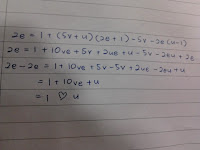 2e = 1 + (5v + u) (2e + 1) - 5v - 2e (u - 1)
2e = 1 + 10ve + 5v + 2ue + u - 5v - 2eu + 2e
2e - 2e = 1 + 10ve + 5v - 5v + 2ue - 2eu + u
= 1 + 10ve + u
= 1 ♡ u